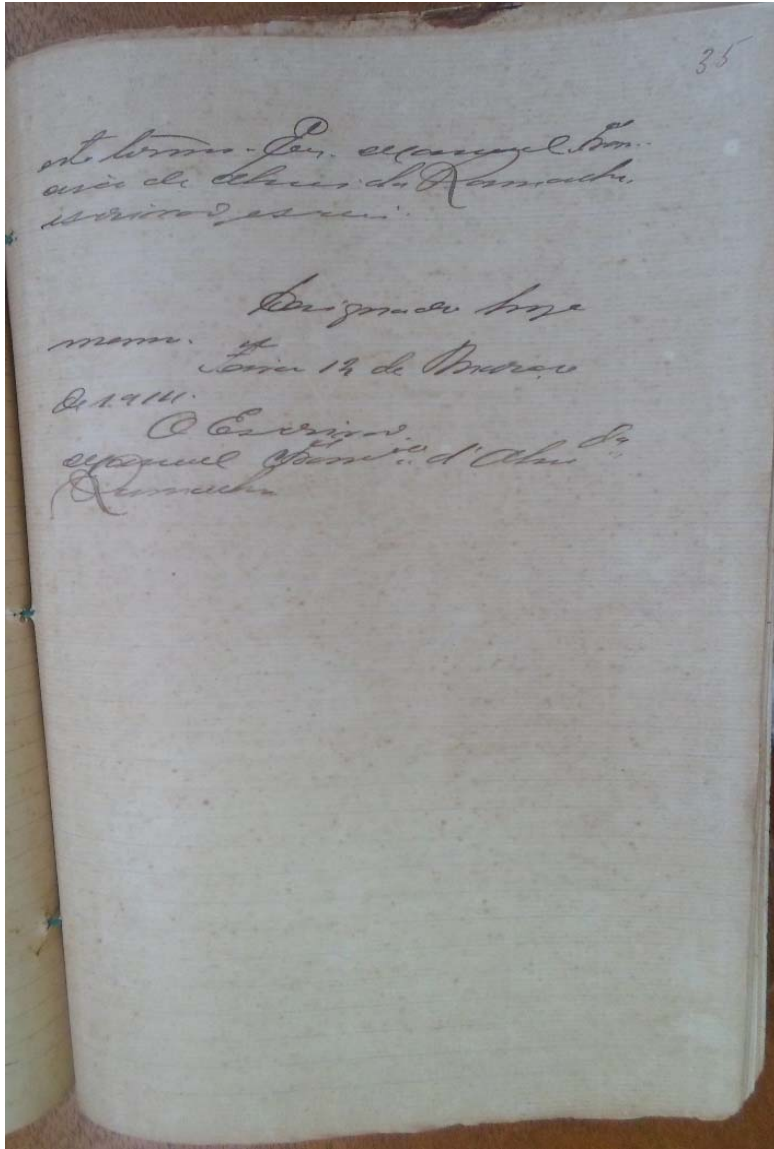 35
este termo. Eu, Manuel Fran-
cisco de Almeida Ramalho,
escrivão, escrevi.
Designado hoje
mesmo.
Feira 12 de Março
de 1914.
O Escrivão
Manuel Franc.co d'Almda
Ramalho